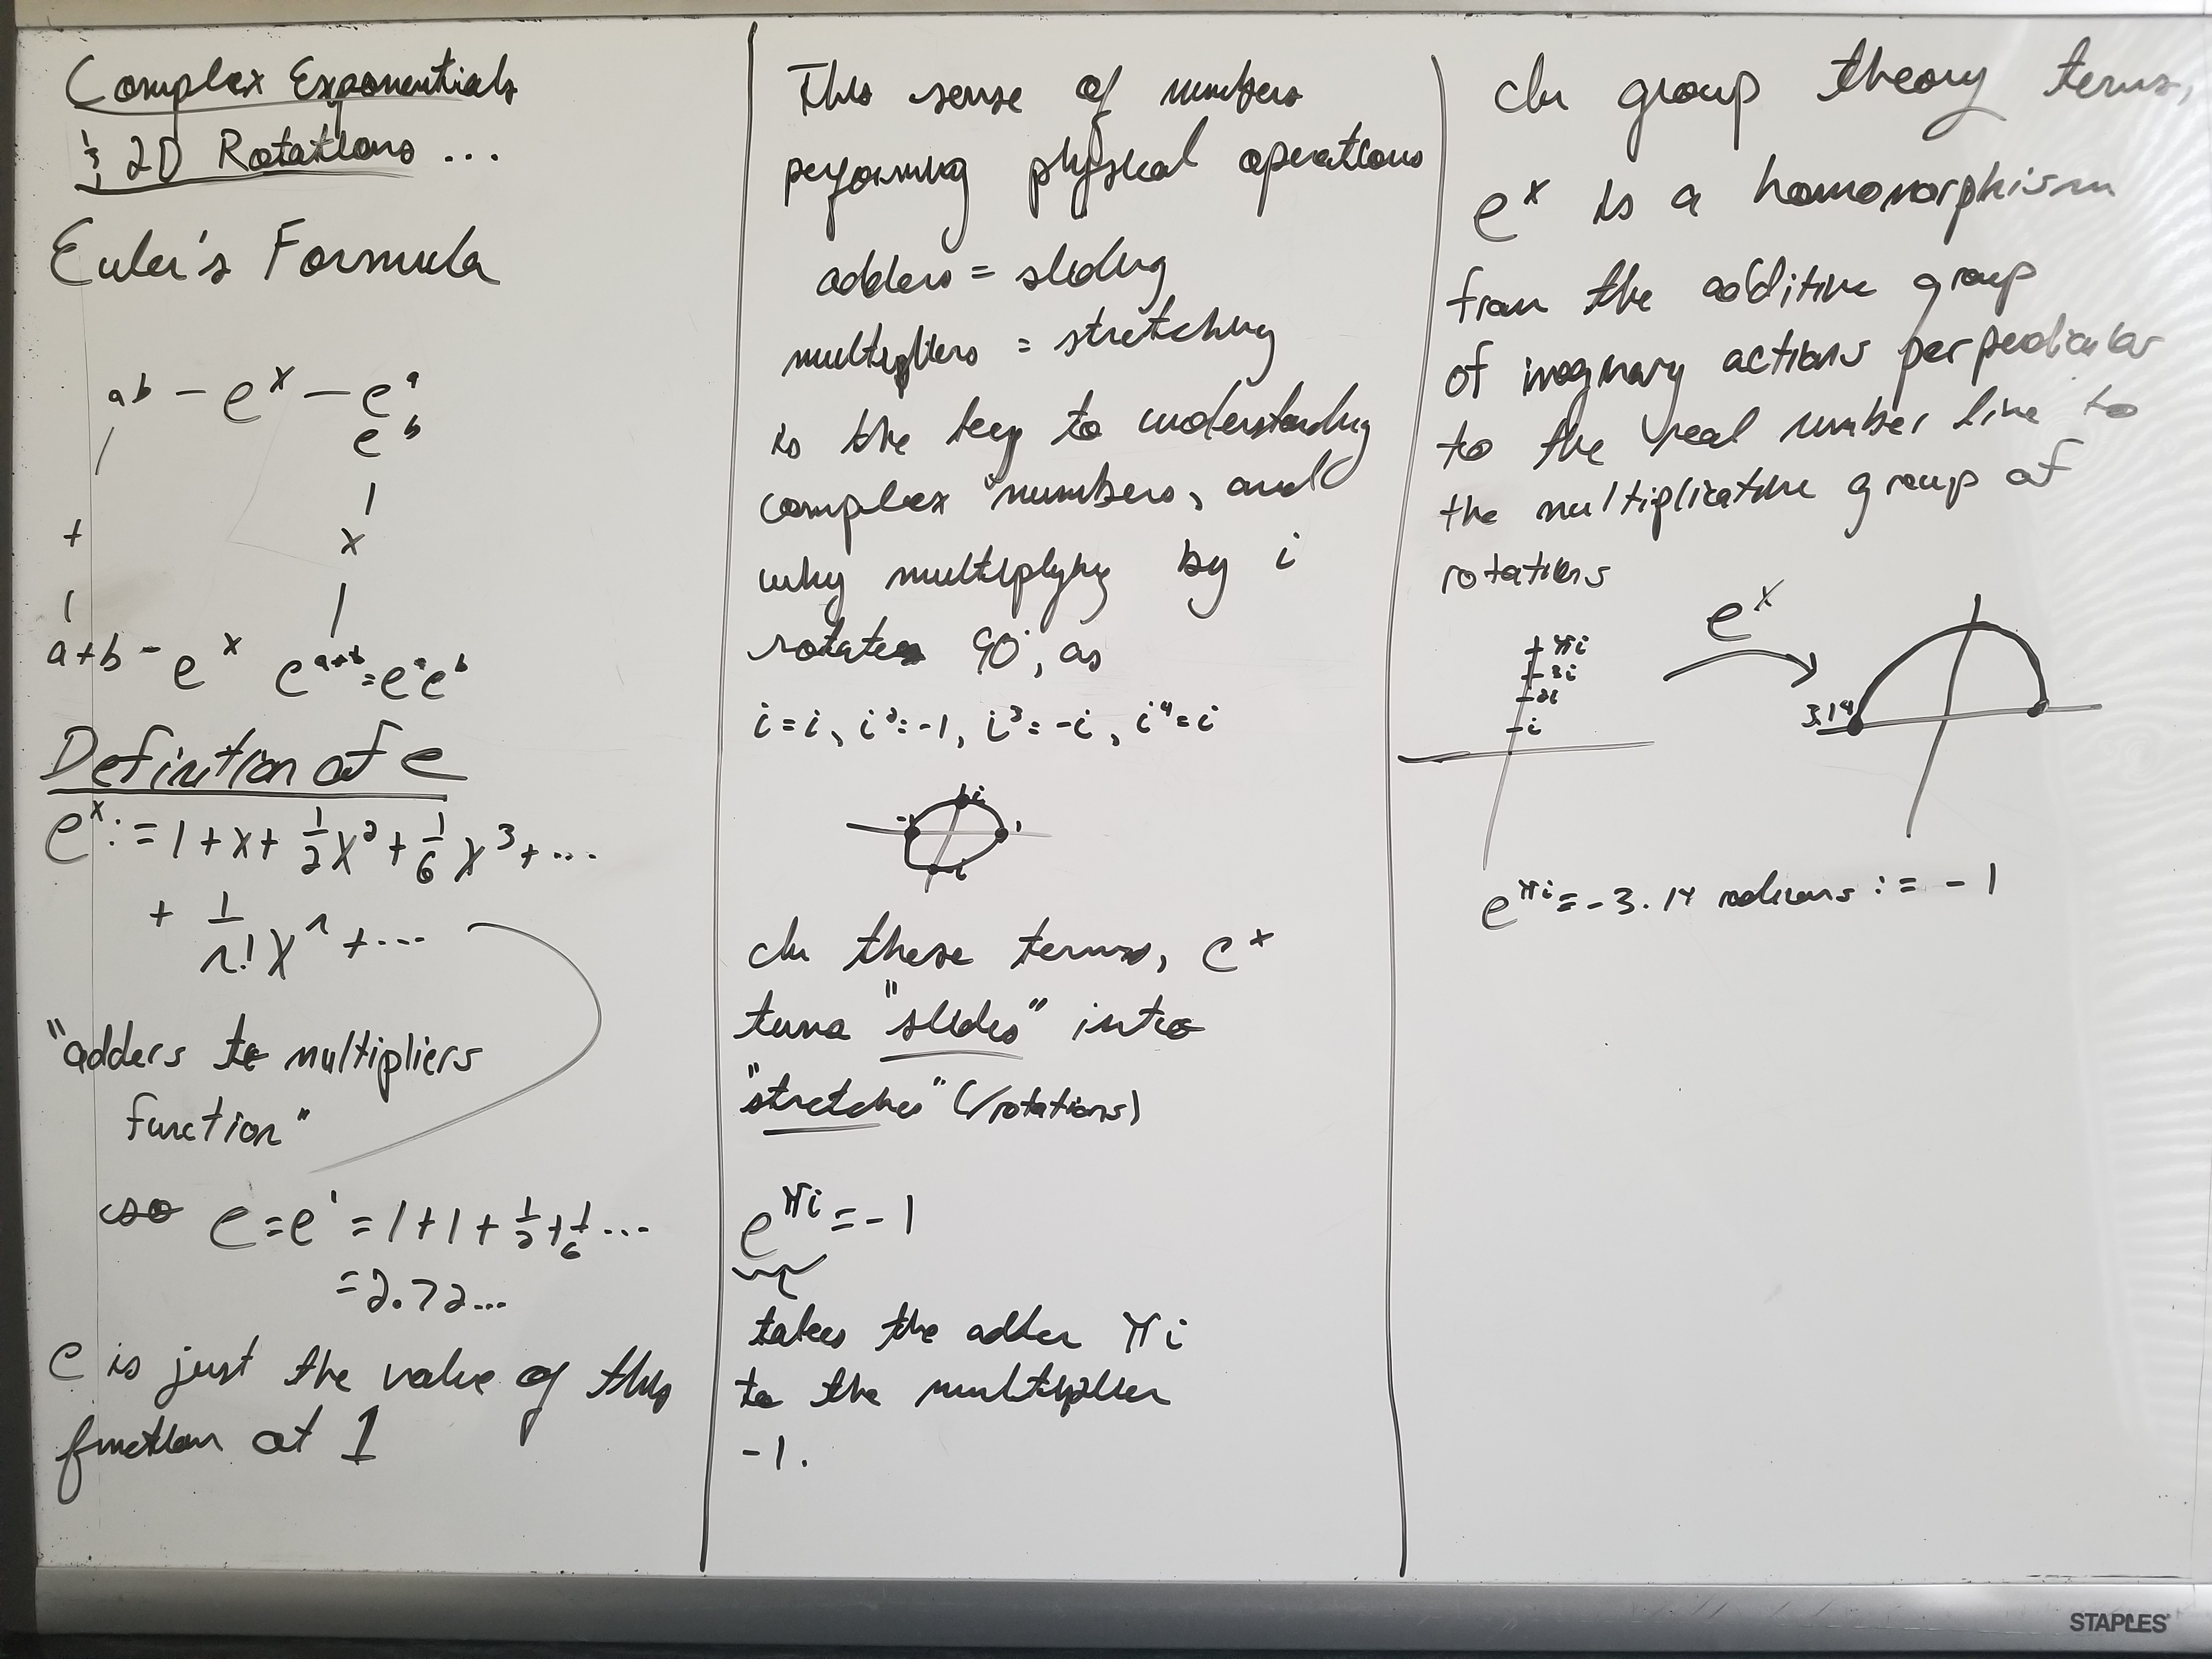 Complex Exponentials
& 2D Rotations ...
Euler's Formula
ab - e^x - e^a
e^b
+ x
a+b - e^x e^{a+b} = e^a e^b
Definition of e
e^x := 1 + x + 1/2 x^2 + 1/6 x^3 + ...
+ 1/n! x^n + ...
"adders to multipliers
function"
so e = e^1 = 1 + 1 + 1/2 + 1/6 ...
= 2.72...
e is just the value of this
function at 1
This sense of numbers
performing physical operations
adders = sliding
multipliers = stretching
is the key to understanding
complex numbers, and
why multiplying by i
rotates 90°, as
i = i, i^2 = -1, i^3 = -i, i^4 = i
i
-1 1
-i
In these terms, e^x
turns "slides" into
"stretches" (/rotations)
e^{πi} = -1
takes the adder πi
to the multiplier
-1.
In group theory terms,
e^x is a homomorphism
from the additive group
of imaginary actions perpedicular
to the real number line to
the multiplicative group of
rotations
e^x
πi
3i
2i
i
3.14
e^{πi} = -3.14 radians := -1
STAPLES